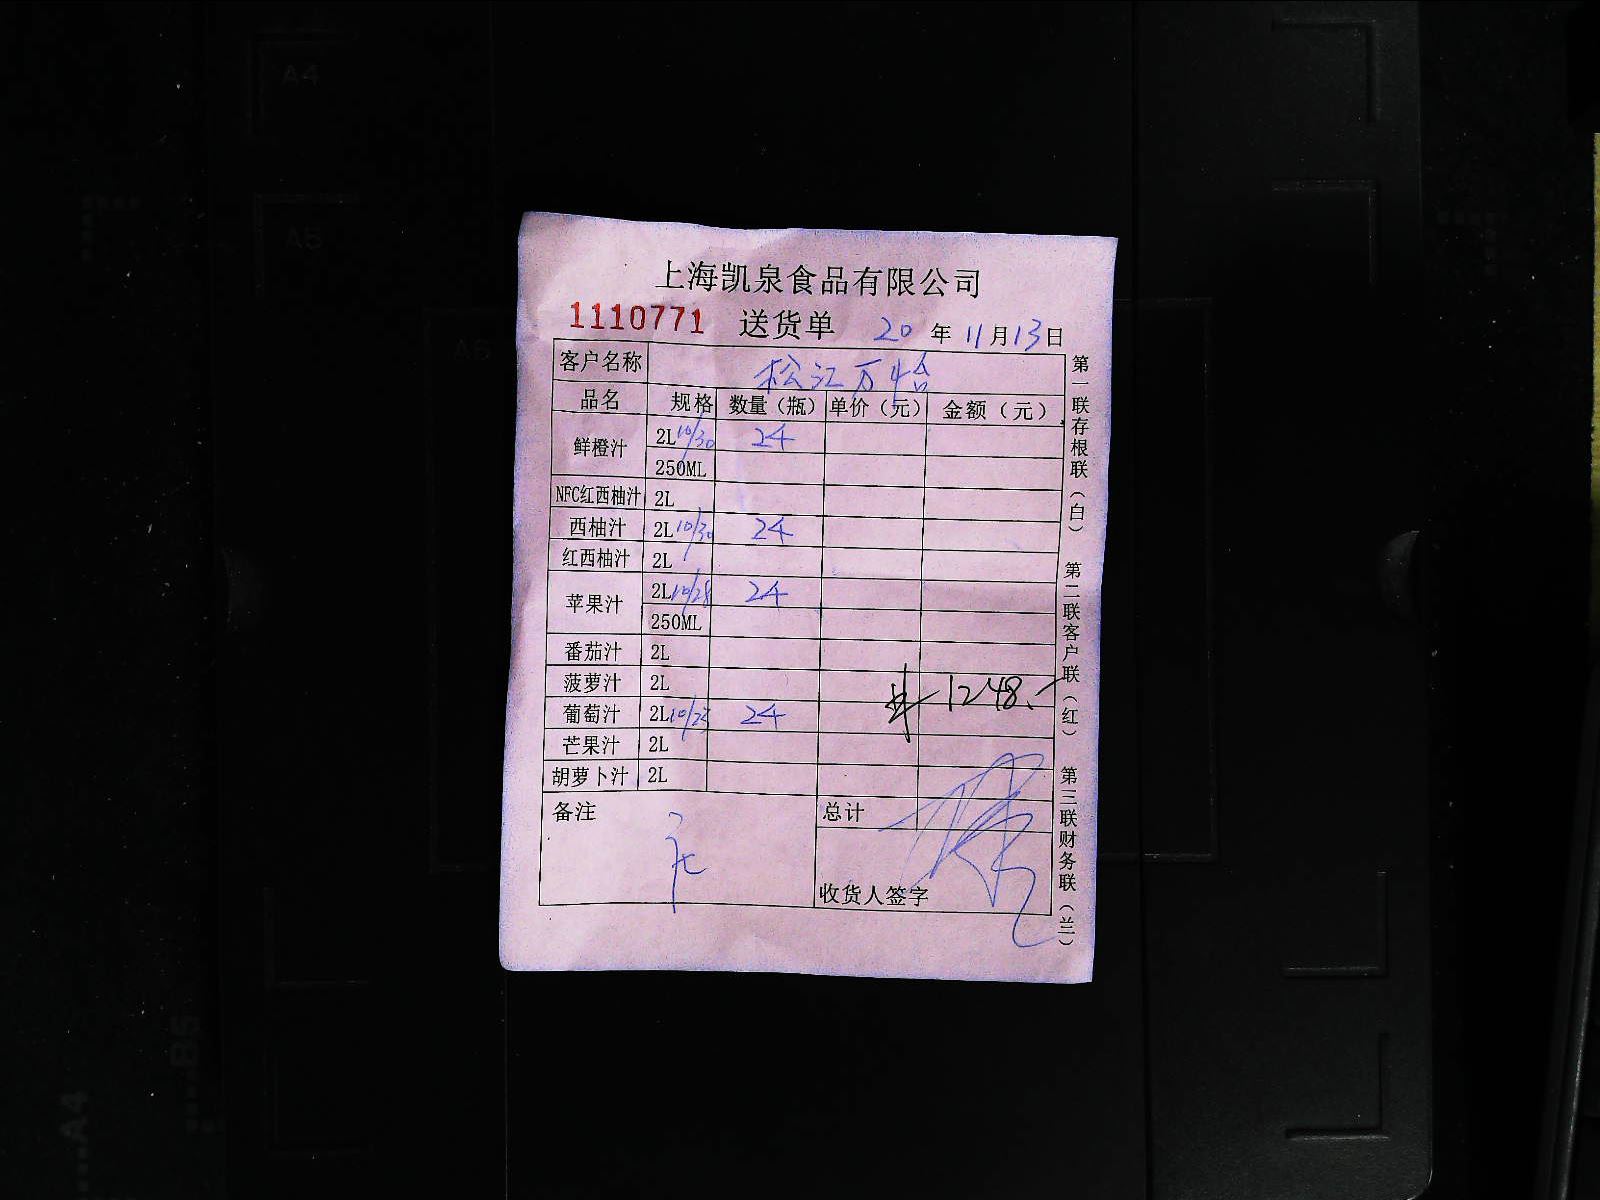 上海凯泉食品有限公司
1110771 送货单 20 年 11 月 13 日
客户名称 松江万怡
品名 规格 数量（瓶） 单价（元） 金额（元）
鲜橙汁 2L 10/30 24
250ML
NFC红西柚汁 2L
西柚汁 2L 10/30 24
红西柚汁 2L
苹果汁 2L 10/28 24
250ML
番茄汁 2L
菠萝汁 2L
1248.-
葡萄汁 2L 24
芒果汁 2L
胡萝卜汁 2L
备注 总计
收货人签字
第一联存根联（白） 第二联客户联（红） 第三联财务联（兰）
A4
A5
A6
B5
A4